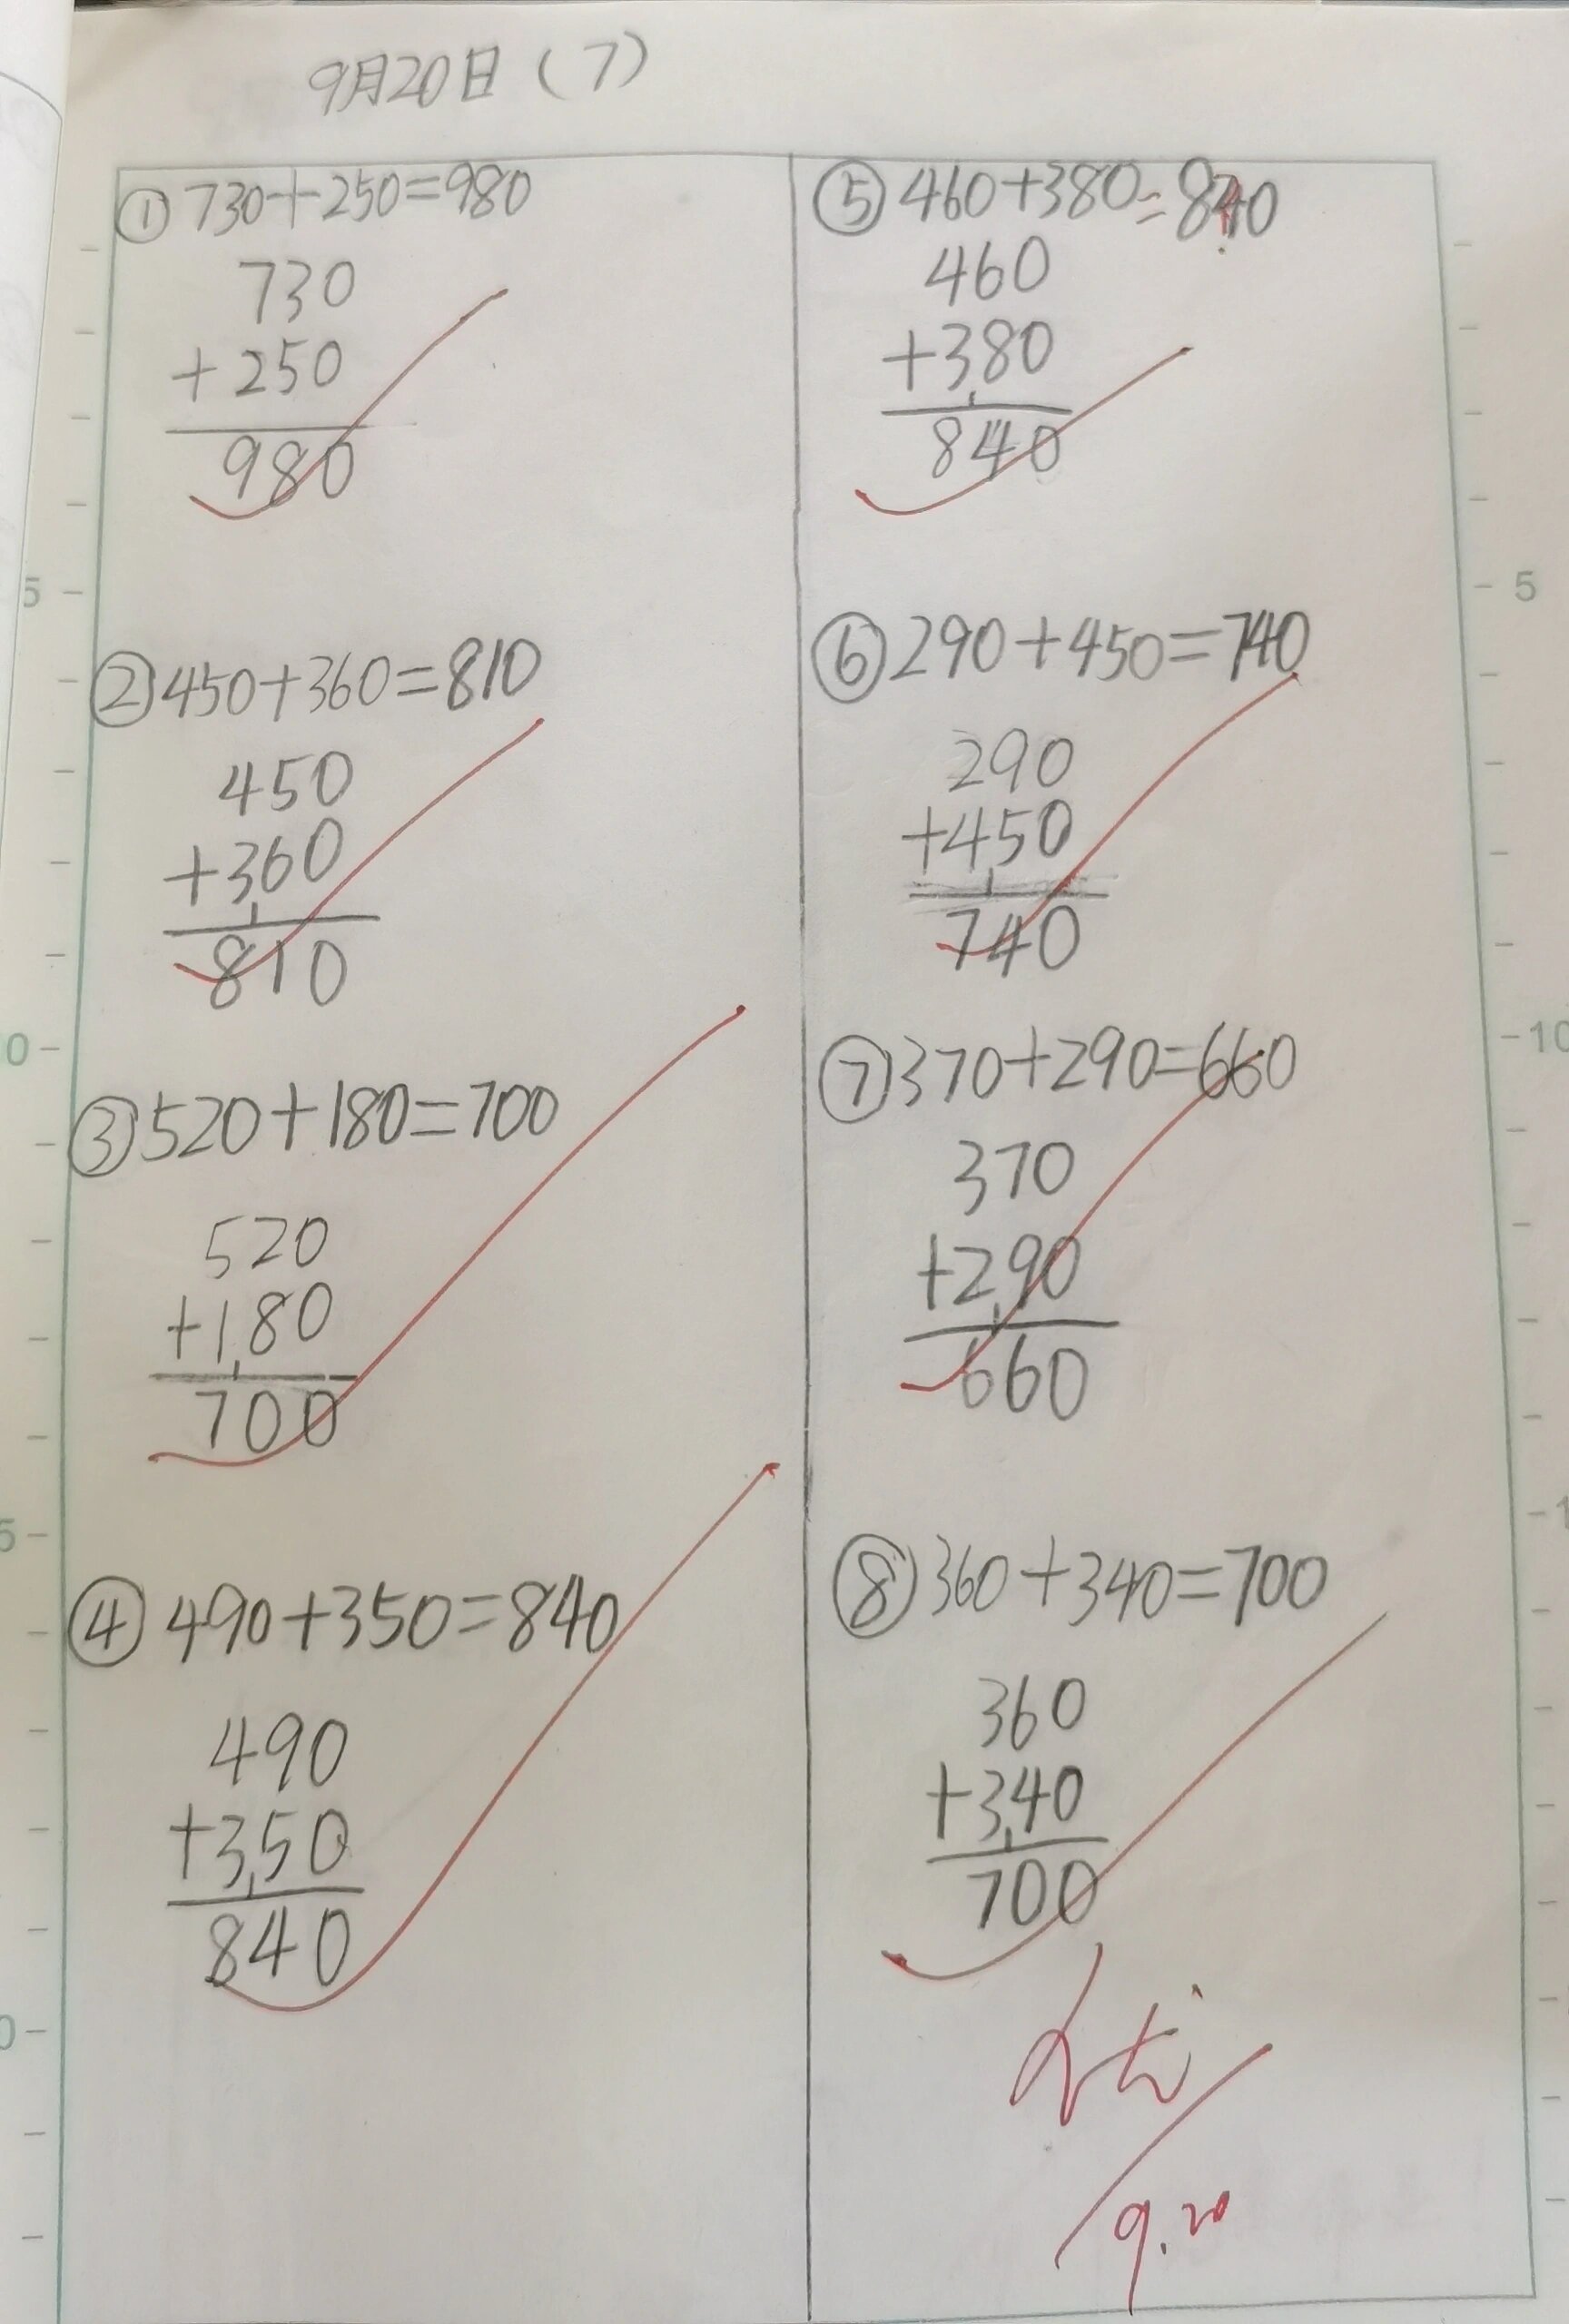 9月20日(7)
①730+250=980
730
+250
980
②450+360=810
450
+360
1
810
③520+180=700
520
+180
1
700
④490+350=840
490
+350
1
840
⑤460+380=840
460
+380
1
840
⑥290+450=740
290
+450
1
740
⑦370+290=660
370
+290
1
660
⑧360+340=700
360
+340
1
700
9.20
5
10
5